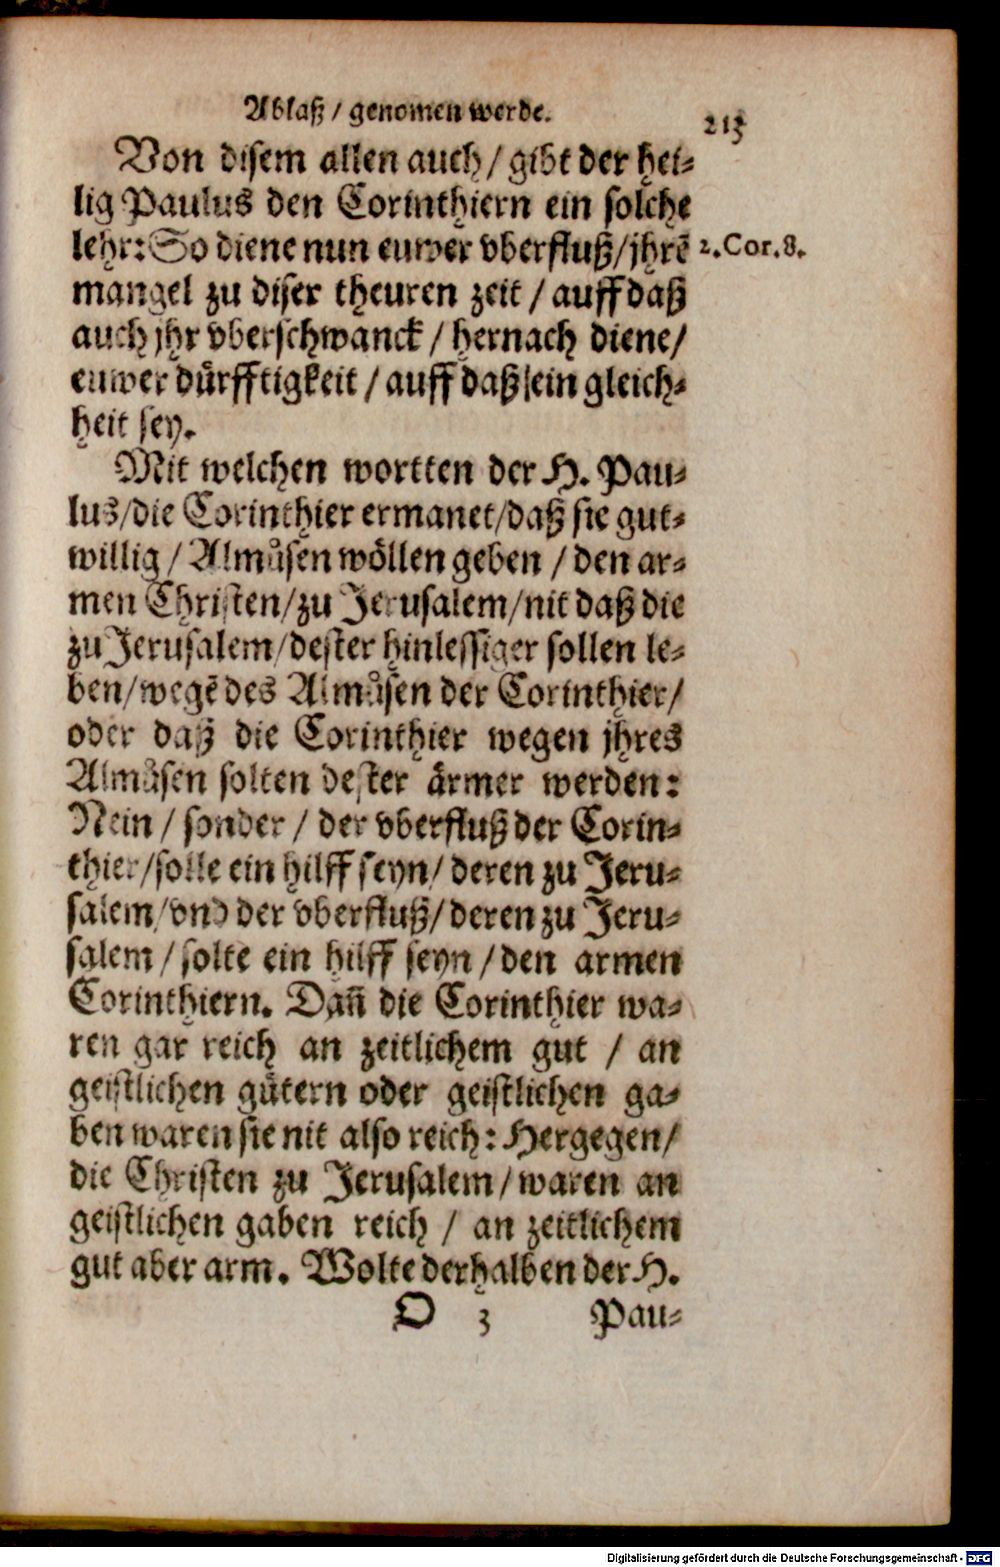 Ablaß / genomen werde.
213
Von disem allen auch / gibt der hei⸗
lig Paulus den Corinthiern ein solche
lehr: So diene nun euwer vberfluß / jhrẽ
2. Cor. 8.
mangel zu diser theuren zeit / auff daß
auch jhr vberschwanck / hernach diene /
euwer dürfftigkeit / auff daß ein gleich⸗
heit sey.
Mit welchen wortten der H. Pau⸗
lus / die Corinthier ermanet / daß sie gut⸗
willig / Almůsen wöllen geben / den ar⸗
men Christen / zu Jerusalem / nit daß die
zu Jerusalem / dester hinlessiger sollen le⸗
ben / wegẽ des Almůsen der Corinthier /
oder daß die Corinthier wegen jhres
Almůsen solten dester ärmer werden:
Nein / sonder / der vberfluß der Corin⸗
thier / solle ein hilff seyn / deren zu Jeru⸗
salem / vnd der vberfluß / deren zu Jeru⸗
salem / solte ein hilff seyn / den armen
Corinthiern. Dañ die Corinthier wa⸗
ren gar reich an zeitlichem gut / an
geistlichen gütern oder geistlichen ga⸗
ben waren sie nit also reich: Hergegen /
die Christen zu Jerusalem / waren an
geistlichen gaben reich / an zeitlichem
gut aber arm. Wolte derhalben der H.
O 3 Pau⸗
Digitalisierung gefördert durch die Deutsche Forschungsgemeinschaft - DFG